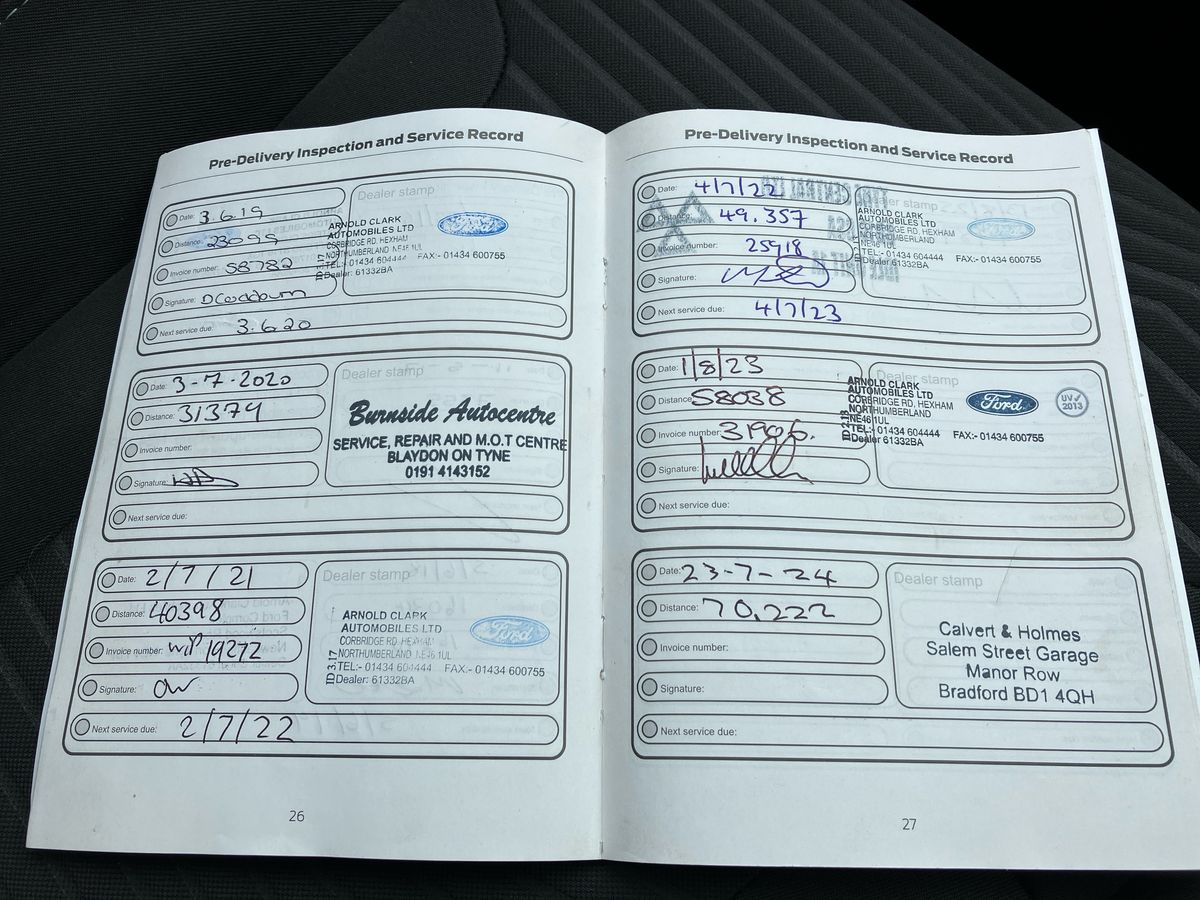 Pre-Delivery Inspection and Service Record
Date: 3.6.19
Distance: 23099
Invoice number: 58782
Signature:
Next service due: 3.6.20
Dealer stamp
ARNOLD CLARK
AUTOMOBILES LTD
CORBRIDGE RD. HEXHAM
NORTHUMBERLAND NE46 1UL
TEL:- 01434 604444 FAX:- 01434 600755
Dealer: 61332BA
ID 3.17
Ford
Date: 3-7-2020
Distance: 31379
Invoice number:
Signature:
Next service due:
Dealer stamp
Burnside Autocentre
SERVICE, REPAIR AND M.O.T CENTRE
BLAYDON ON TYNE
0191 4143152
Date: 2/7/21
Distance: 40398
Invoice number: WIP 19272
Signature:
Next service due: 2/7/22
Dealer stamp
ARNOLD CLARK
AUTOMOBILES LTD
CORBRIDGE RD. HEXHAM
NORTHUMBERLAND NE46 1UL
TEL:- 01434 604444 FAX:- 01434 600755
Dealer: 61332BA
ID 3.17
Ford
26
Pre-Delivery Inspection and Service Record
Date: 4/7/22
Distance: 49.357
Invoice number: 25918
Signature:
Next service due: 4/7/23
Dealer stamp
ARNOLD CLARK
AUTOMOBILES LTD
CORBRIDGE RD. HEXHAM
NORTHUMBERLAND
NE46 1UL
TEL:- 01434 604444 FAX:- 01434 600755
Dealer 61332BA
Ford
Date: 1/8/23
Distance: 58038
Invoice number: 31906.
Signature:
Next service due:
Dealer stamp
ARNOLD CLARK
AUTOMOBILES LTD
CORBRIDGE RD. HEXHAM
NORTHUMBERLAND
NE46 1UL
TEL:- 01434 604444 FAX:- 01434 600755
Dealer 61332BA
Ford
UV
2013
Date: 23-7-24
Distance: 70,222
Invoice number:
Signature:
Next service due:
Dealer stamp
Calvert & Holmes
Salem Street Garage
Manor Row
Bradford BD1 4QH
27